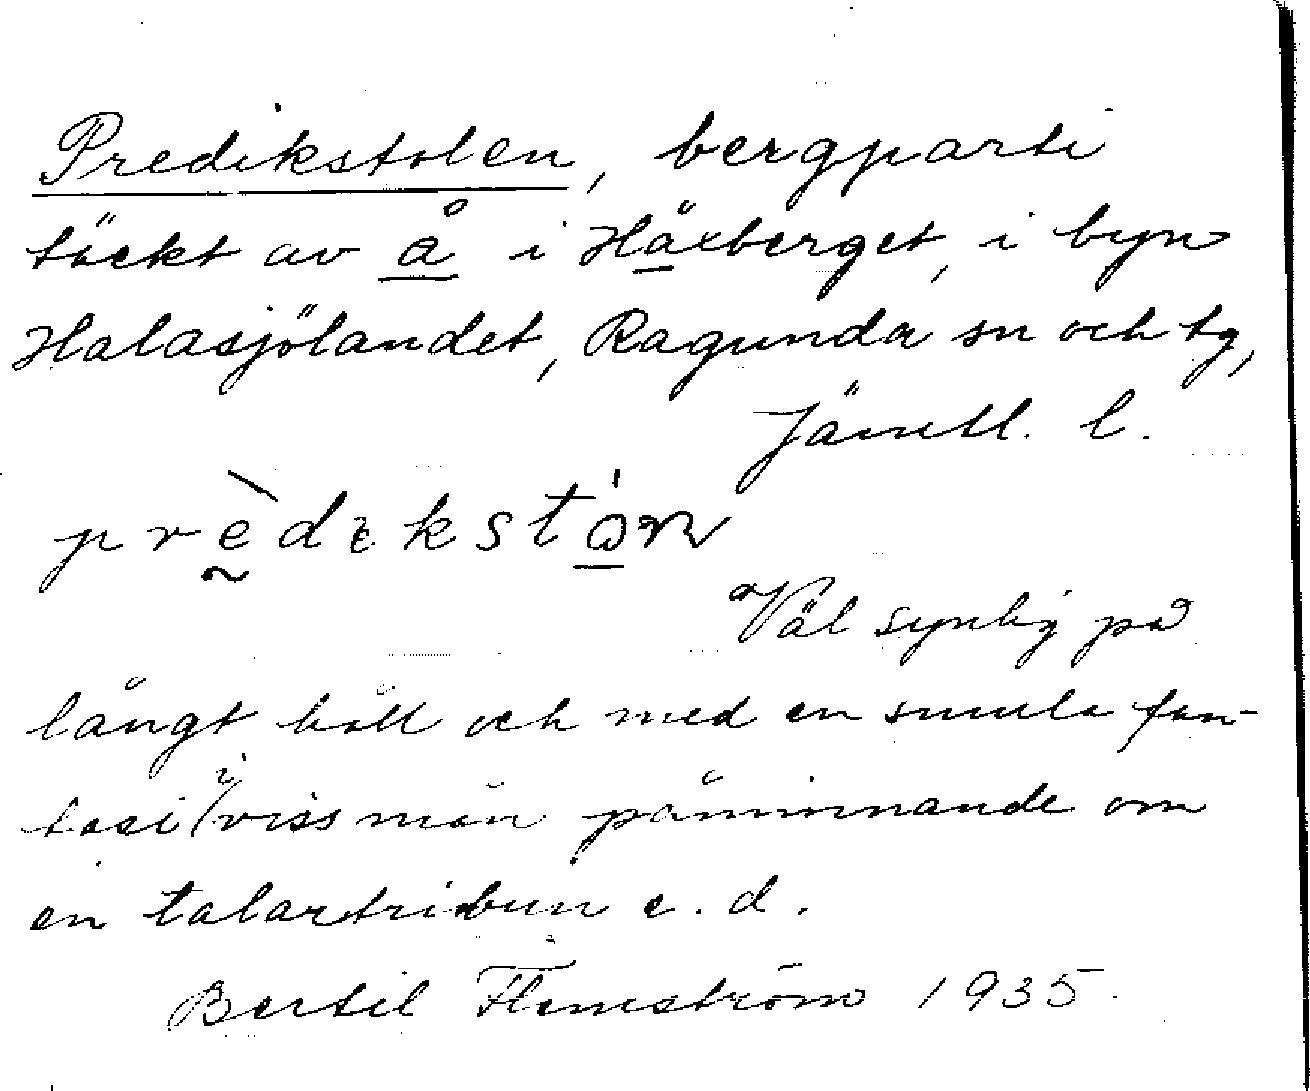 Predikstolen, bergparti
täckt av å i Håxberget, i byn
Halasjölandet, Ragunda sn och tg,
Jämtl. l.
Väl synlig på
långt håll och med en smula fan-
tasi i viss mån påminnande om
en talartribun e. d.
Bertil Flemström 1935.